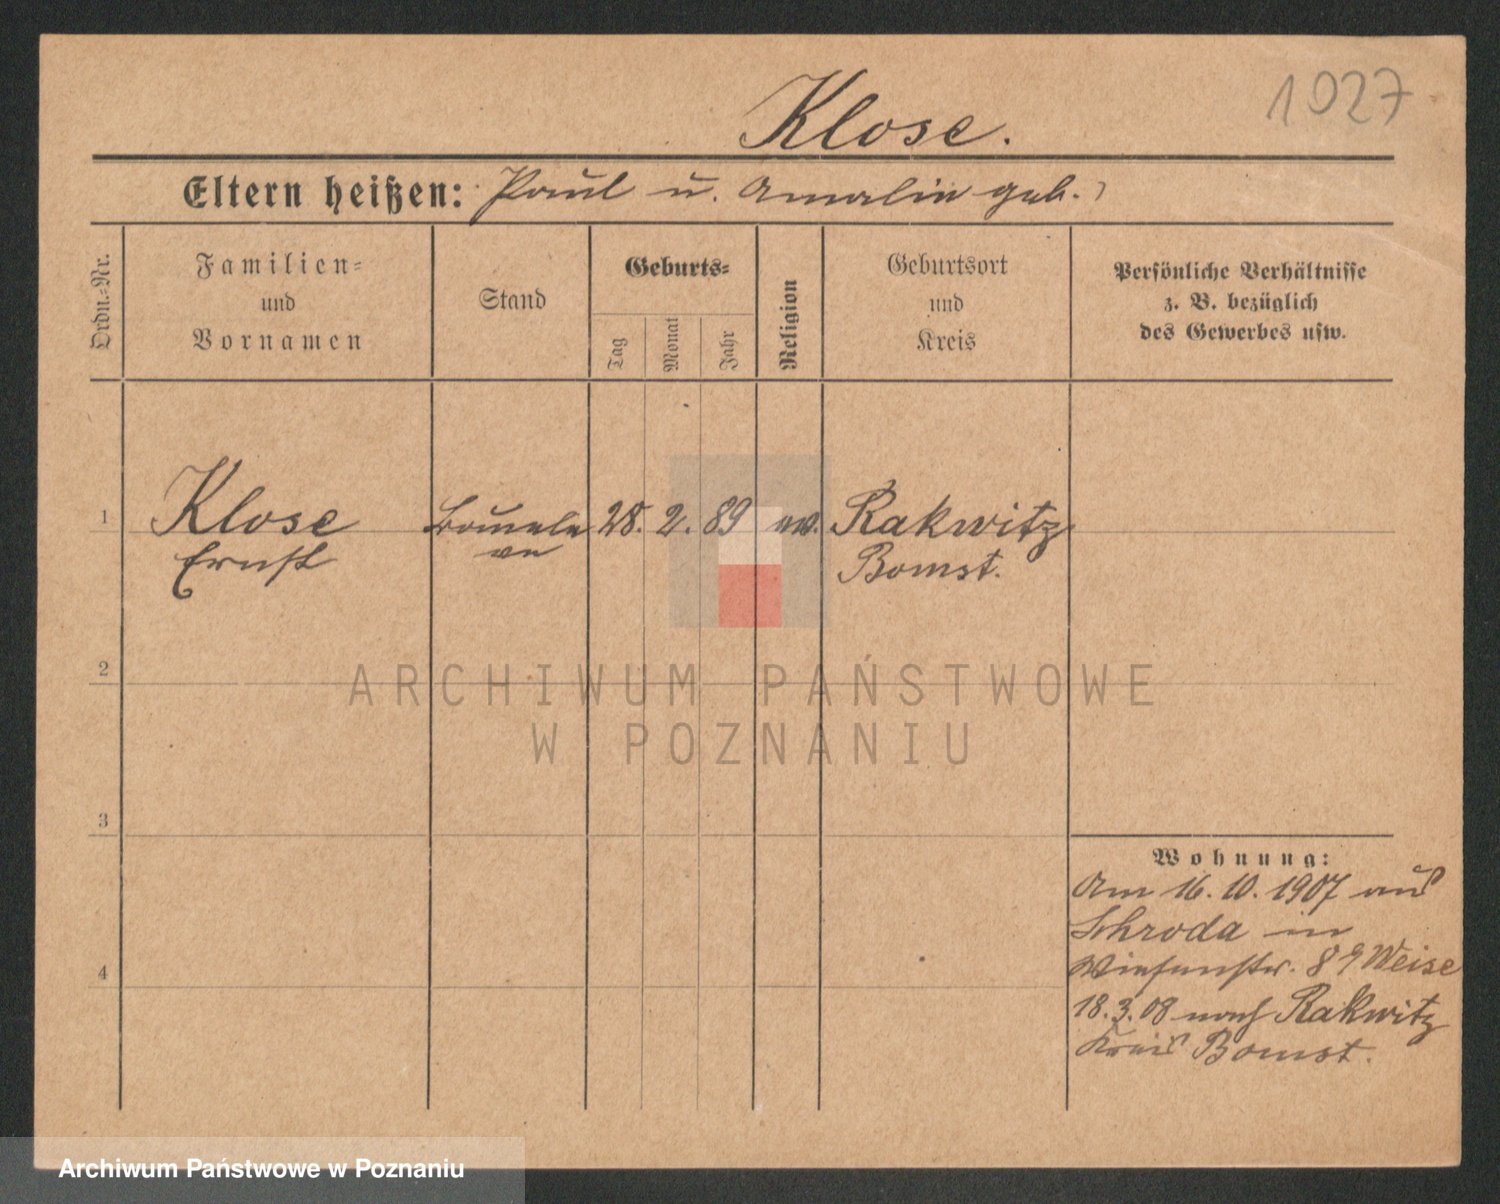 1027
Klose.
Eltern heißen: Paul u. Amalie geb. ?
Ordn.-Nr.
Familien-
und
Vornamen
Stand
Geburts-
Tag
Monat
Jahr
Religion
Geburtsort
und
Kreis
Persönliche Verhältnisse
z. B. bezüglich
des Gewerbes usw.
1 Klose 28. 2. 89 ev. Rakwitz
Ernst Bomst.
2
ARCHIWUM PAŃSTWOWE
W POZNANIU
3
Wohnung:
Am 16.10.1907 aus
Schroda in
Wiesenstr. 8 Weise
4
18.3.08 nach Rakwitz
Kreis Bomst.
Archiwum Państwowe w Poznaniu